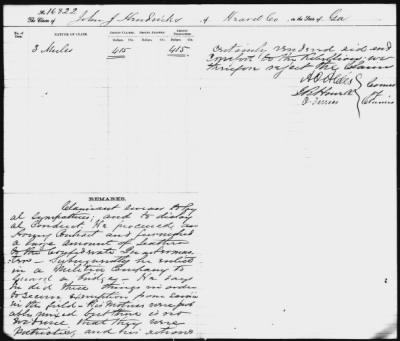 No. 16422
The Claim of John J Hendricks of Heard Co, in the State of Ga
No. of Claim. NATURE OF CLAIM. AMOUNT CLAIMED. AMOUNT ALLOWED. AMOUNT DISALLOWED.
Dollars. Cts. Dollars. Cts. Dollars. Cts.
3 Mules 415 415
REMARKS.
Claimant swears to loy
al sympathies; and to disloy
al conduct. He procured an
Army Contract and furnished
a large amount of leather
to the Confederate Quartermas
ters - Subsequently he enlisted
in a Militia Company to
guard a bridge - He says
he did these things in order
to secure exemption from service
in the field - His motives were prob
ably mixed but there is no
evidence that they were
patriotic, and his actions
certainly rendered aid and
comfort to the Rebellion; we
therefore reject the claim
A O Aldis
J B Howell
O. Ferriss
Comrs
of
Claims